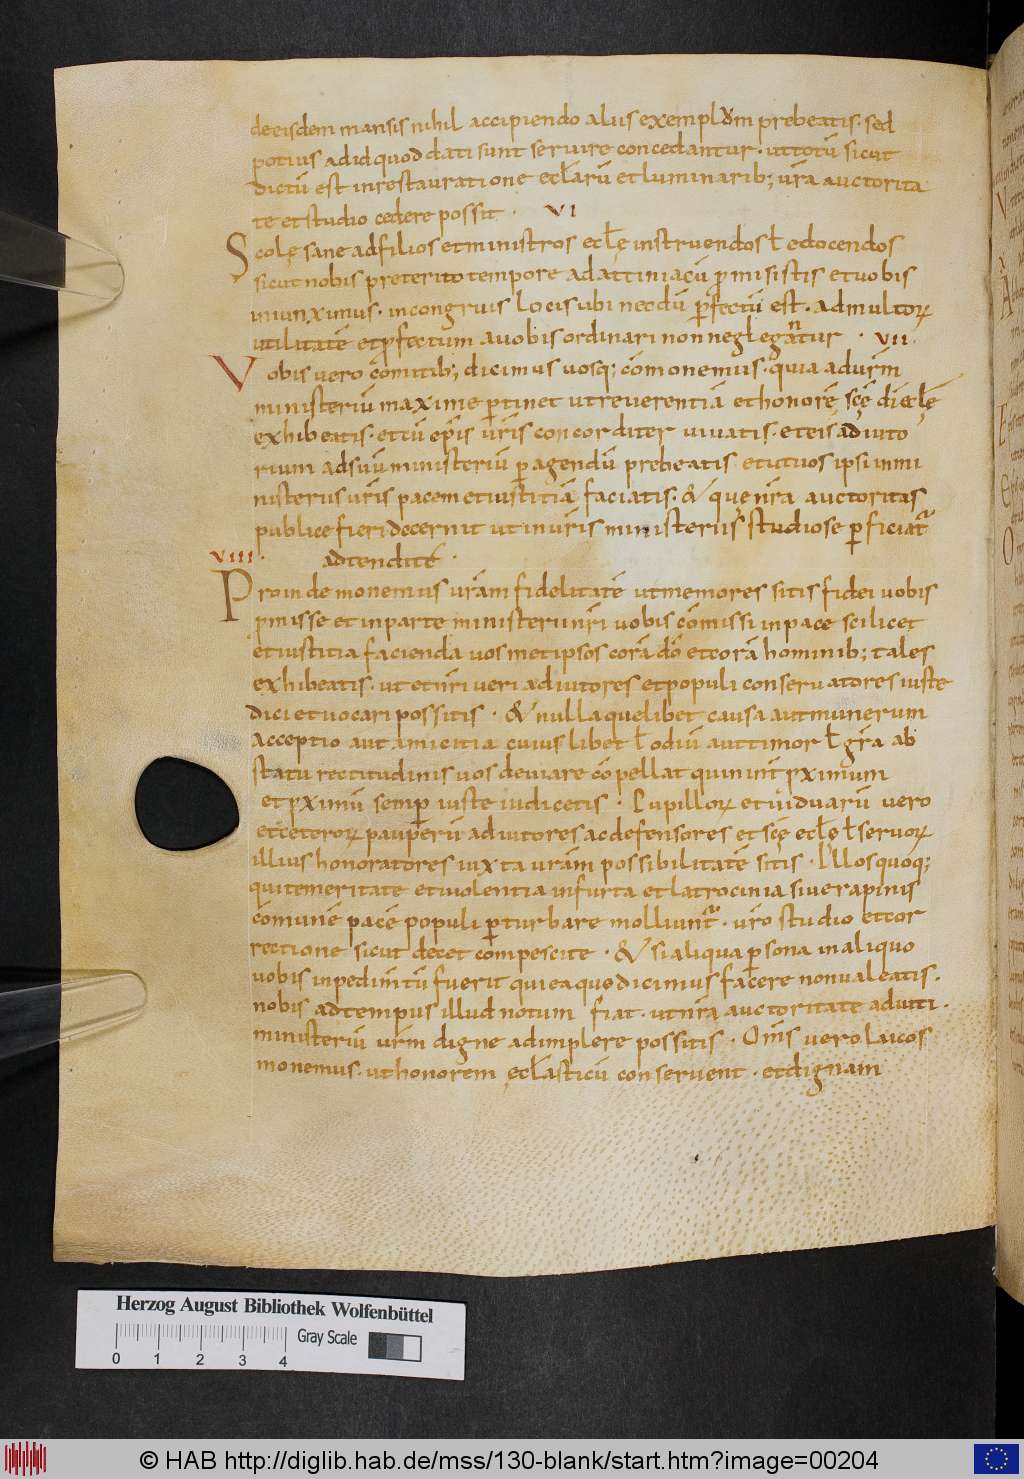 deeisdem mansis nihil accipiendo aliis exemplũm prebeatis. sed
potius adid quod dati sunt seruire concedantur. uttotũ sicut
dictũ est inrestauratione eclãrũ et luminarib; urã auctorita
te et studio cedere possit. VI
Scolę sane adfilios et ministros eclę instruendos ł edocendos
sicut nobis preterito tempore ad attiniacũ pmisistis et uobis
iniunximus. incongruis locis ubi necdũ pfectũ est. admultorꝝ
utilitatẽ et pfectum auobis ordinari non neglegantur. VII.
Vobis uero cõmitib; dicimus uosq; cõmonemus. quia adurm̃
ministeriũ maxime ptinet utreuerentiã et honorẽ scę dĩ eclę
exhibeatis. et cũ epĩs urĩs concorditer uiuatis. et eis adiuto
rium adsuũ ministeriũ pagendũ prebeatis et ut uos ipsi inmi
nisteriis urĩs pacem et iustitiã faciatis. & quę nrã auctoritas
publice fieri decernit utinurĩs ministeriis studiose pficiat̃
VIII. adtendite.
Proinde monemus urãm fidelitatẽ utmemores sitis fidei uobis
pmisse et inparte ministerii nrĩ uobis cõmissi inpace scilicet
et iustitia facienda uosmetipsos corã dõ et corã hominib; tales
exhibeatis. ut et nrĩ ueri adiutores et populi conseruatores iuste
dici et uocari possitis. & nulla quelibet causa aut munerum
acceptio aut amicitia cuius libet ł odiũ aut timor ł grã ab
statu rectitudinis uos deuiare cõpellat quin int pximum
et pximũ semp iuste iudicetis. Pupillorꝝ et uiduarũ uero
et ceterorꝝ pauperũ adiutores ac defensores et scę eclę ł seruorꝝ
illius honoratores iuxta urãm possibilitatẽ sitis. Illos quoq;
qui temeritate et uiolentia in furta et latrocinia siue rapinis
cõmunẽ pacẽ populi pturbare moliunt̃. urõ studio et cor
rectione sicut decet cõmpescite. & si aliqua psona inaliquo
uobis inpedimtũ fuerit qui ea que dicimus facere non ualeatis.
nobis adtempus illud notum fiat. ut nrã auctoritate adiuti.
ministeriũ urm̃ digne adimplere possitis. Om̃s uero laicos
monemus. ut honorem eclãsticũ conseruent. et dignam
Herzog August Bibliothek Wolfenbüttel
Gray Scale
0 1 2 3 4
© HAB http://diglib.hab.de/mss/130-blank/start.htm?image=00204